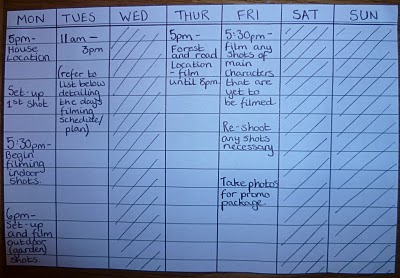 MON TUES WED THUR FRI SAT SUN
5pm-
House
Location
Set-up
1st shot
5:30pm-
Begin
filming
indoor
shots.
6pm-
Set-up
and film
outdoor
(garden)
shots.
11am-
3pm
(refer to
list below
detailing
the days
filming
schedule/
plan)
5pm-
Forest
and road
Location
- film
until 8pm.
5:30pm-
film any
shots of
main
characters
that are
yet to
be filmed.
Re-shoot
any shots
necessary
Take photos
for promo
package.